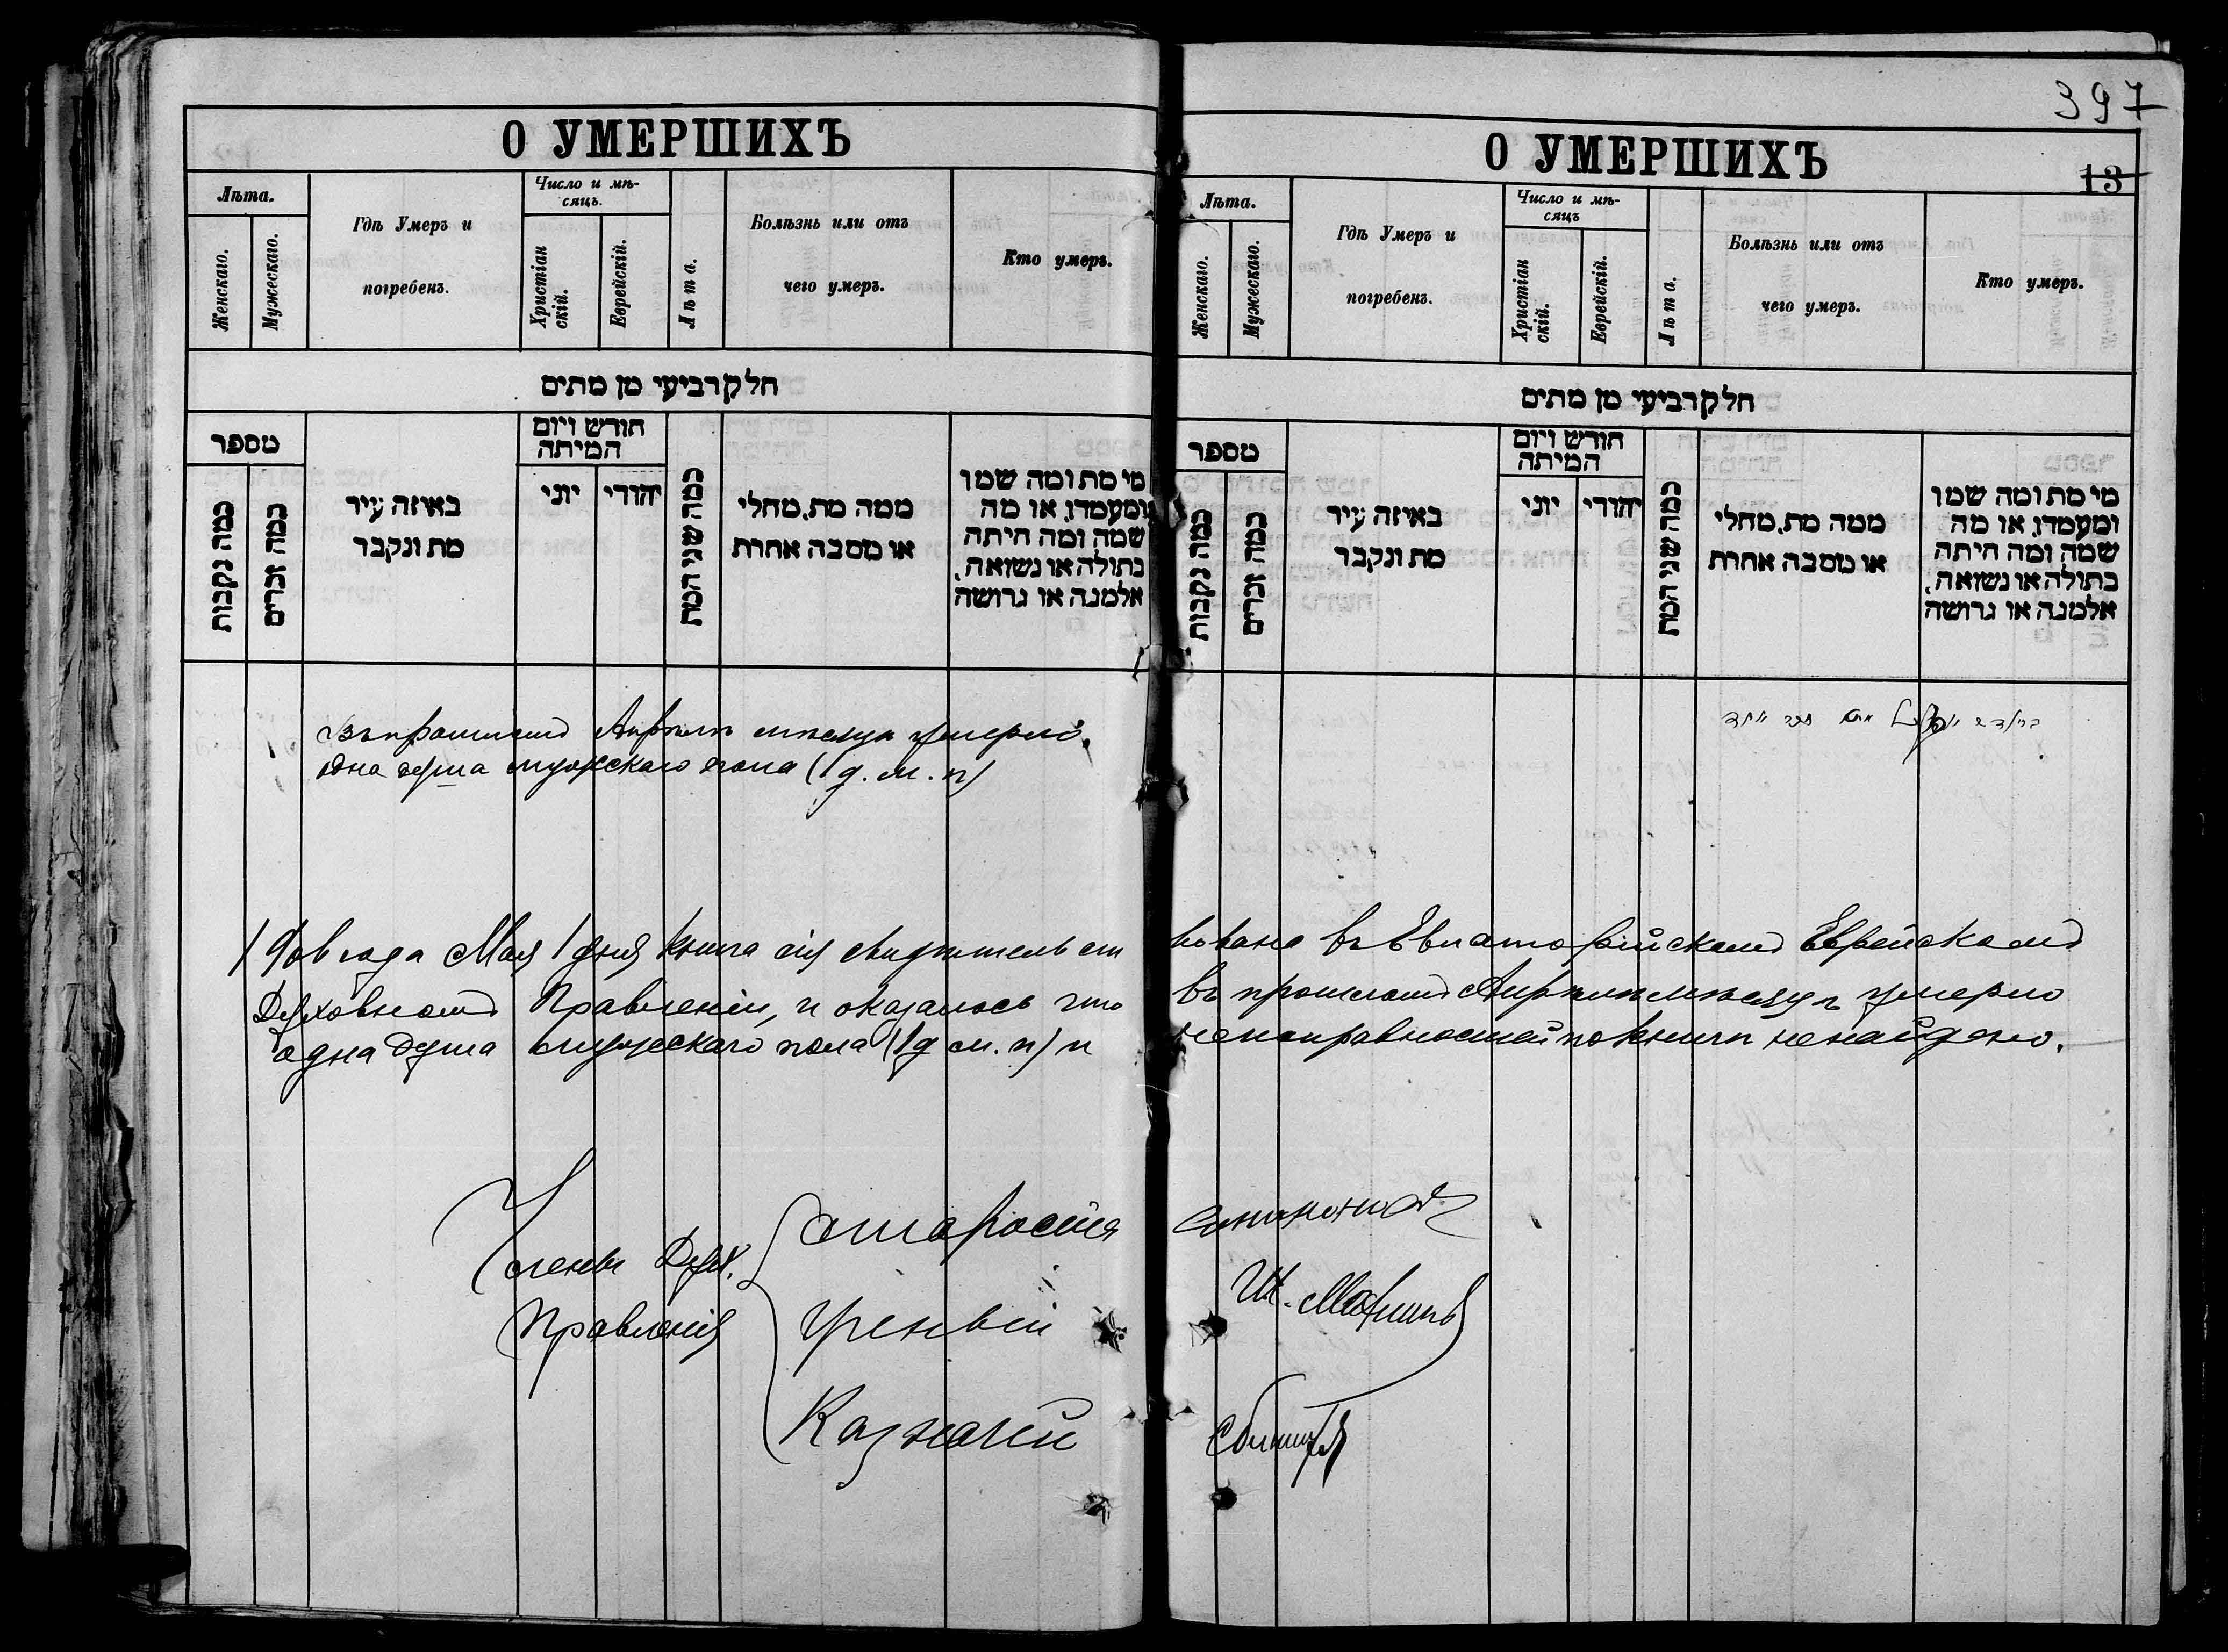 397
О УМЕРШИХЪ
Лѣта.
Женскаго.
Мужескаго.
Гдѣ Умеръ и
погребенъ.
Число и мѣ-
сяцъ.
Христіан
скій.
Еврейскій.
Лѣта.
Болѣзнь или отъ
чего умеръ.
Кто умеръ.
חלק רביעי מן מתים
מספר
כמה נקבות
כמה זכרים
באיזה עיר
מת ונקבר
חודש ויום
המיתה
יוני
יהודי
כמה שני המת
ממה מת, מחלי
או מסבה אחרת
מי מת ומה שמו
ומעמדו, או מה
שמה ומה היתה
בתולה או נשואה,
אלמנה או גרושה
Въ прошломъ Апрѣлѣ мѣсяцѣ умерло
одна душа мужескаго пола (1 д. м. п)
О УМЕРШИХЪ
13
Лѣта.
Женскаго.
Мужескаго.
Гдѣ Умеръ и
погребенъ.
Число и мѣ-
сяцъ
Христіан
скій.
Еврейскій.
Лѣта.
Болѣзнь или отъ
чего умеръ.
Кто умеръ.
חלק רביעי מן מתים
מספר
כמה נקבות
כמה זכרים
באיזה עיר
מת ונקבר
חודש ויום
המיתה
יוני
יהודי
כמה שני המת
ממה מת, מחלי
או מסבה אחרת
מי מת ומה שמו
ומעמדו, או מה
שמה ומה היתה
בתולה או נשואה,
אלמנה או גרושה
מת זכר אחד
года Мая 1 дня книга сія свидѣтельст вована въ Евпаторійскомъ Еврейскомъ
Духовномъ Правленіи, и оказалось что въ прошломъ Апрѣлѣ мѣсяцѣ умерло
одна душа мужескаго пола (1 д м. п) и неисправностей по книгѣ не найдено.
Члены Дух.
Правленія
Староста
Ученый
Казначей